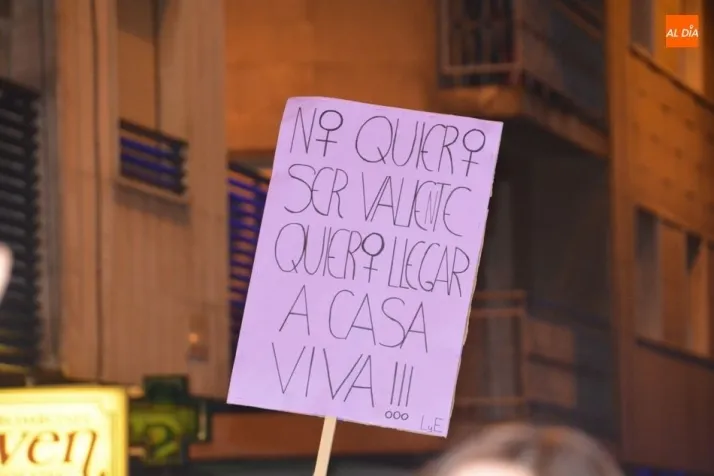 AL DÍA
NO QUIERO
SER VALIENTE
QUIERO LLEGAR
A CASA
VIVA!!!
LyE
ven